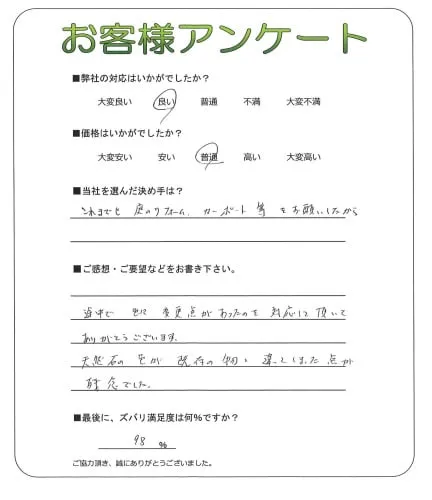 お客様アンケート
■弊社の対応はいかがでしたか？
大変良い 良い 普通 不満 大変不満
■価格はいかがでしたか？
大変安い 安い 普通 高い 大変高い
■当社を選んだ決め手は？
これまでも 庭のリフォーム、カーポート 等 をお願いしたから
■ご感想・ご要望などをお書き下さい。
途中で 変更点があったのを 対応して頂いて
ありがとうございます。
天然石の色が 既存の物と違ってしまった点が
残念でした。
■最後に、ズバリ満足度は何%ですか？
98 %
ご協力頂き、誠にありがとうございました。